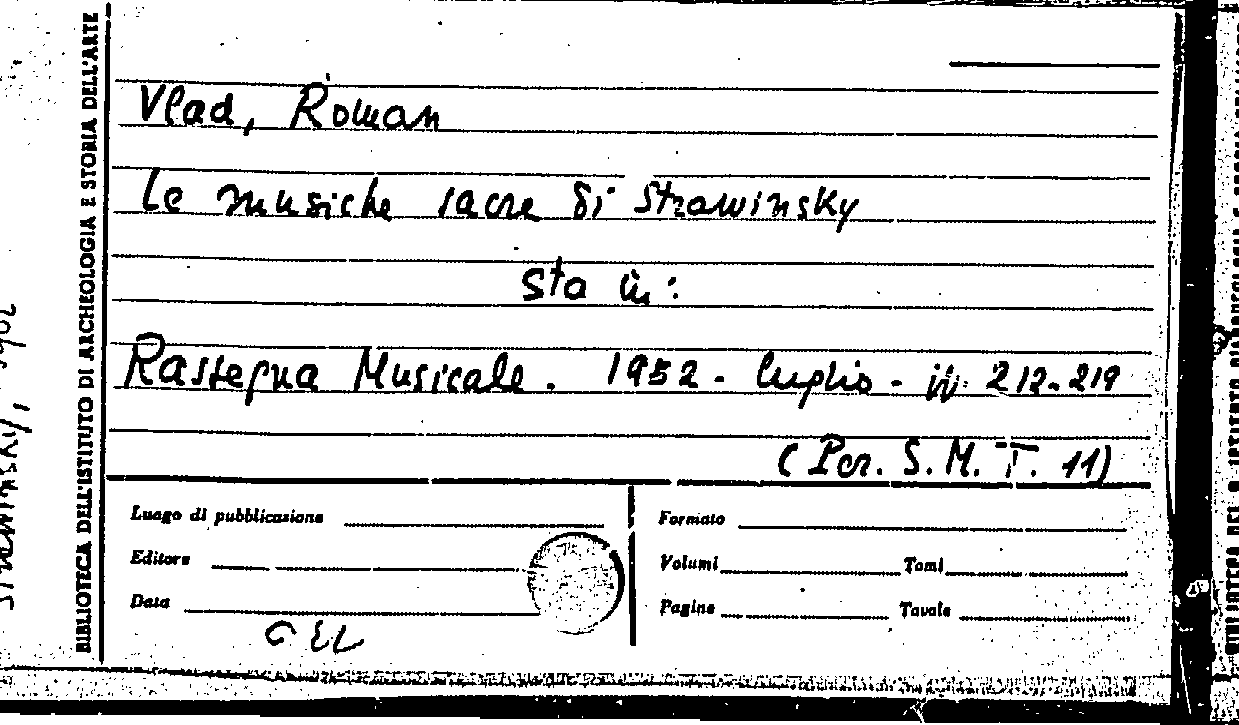 BIBLIOTECA DELL'ISTITUTO DI ARCHEOLOGIA E STORIA DELL'ARTE
Vlad, Roman
Le musiche sacre di Strawinsky
Sta in:
Rassegna Musicale. 1952 - luglio - 212-219
(Per. S. M. T. 11)
Luogo di pubblicazione
Editore
Data
Formato
Volumi Tomi
Pagine Tavole